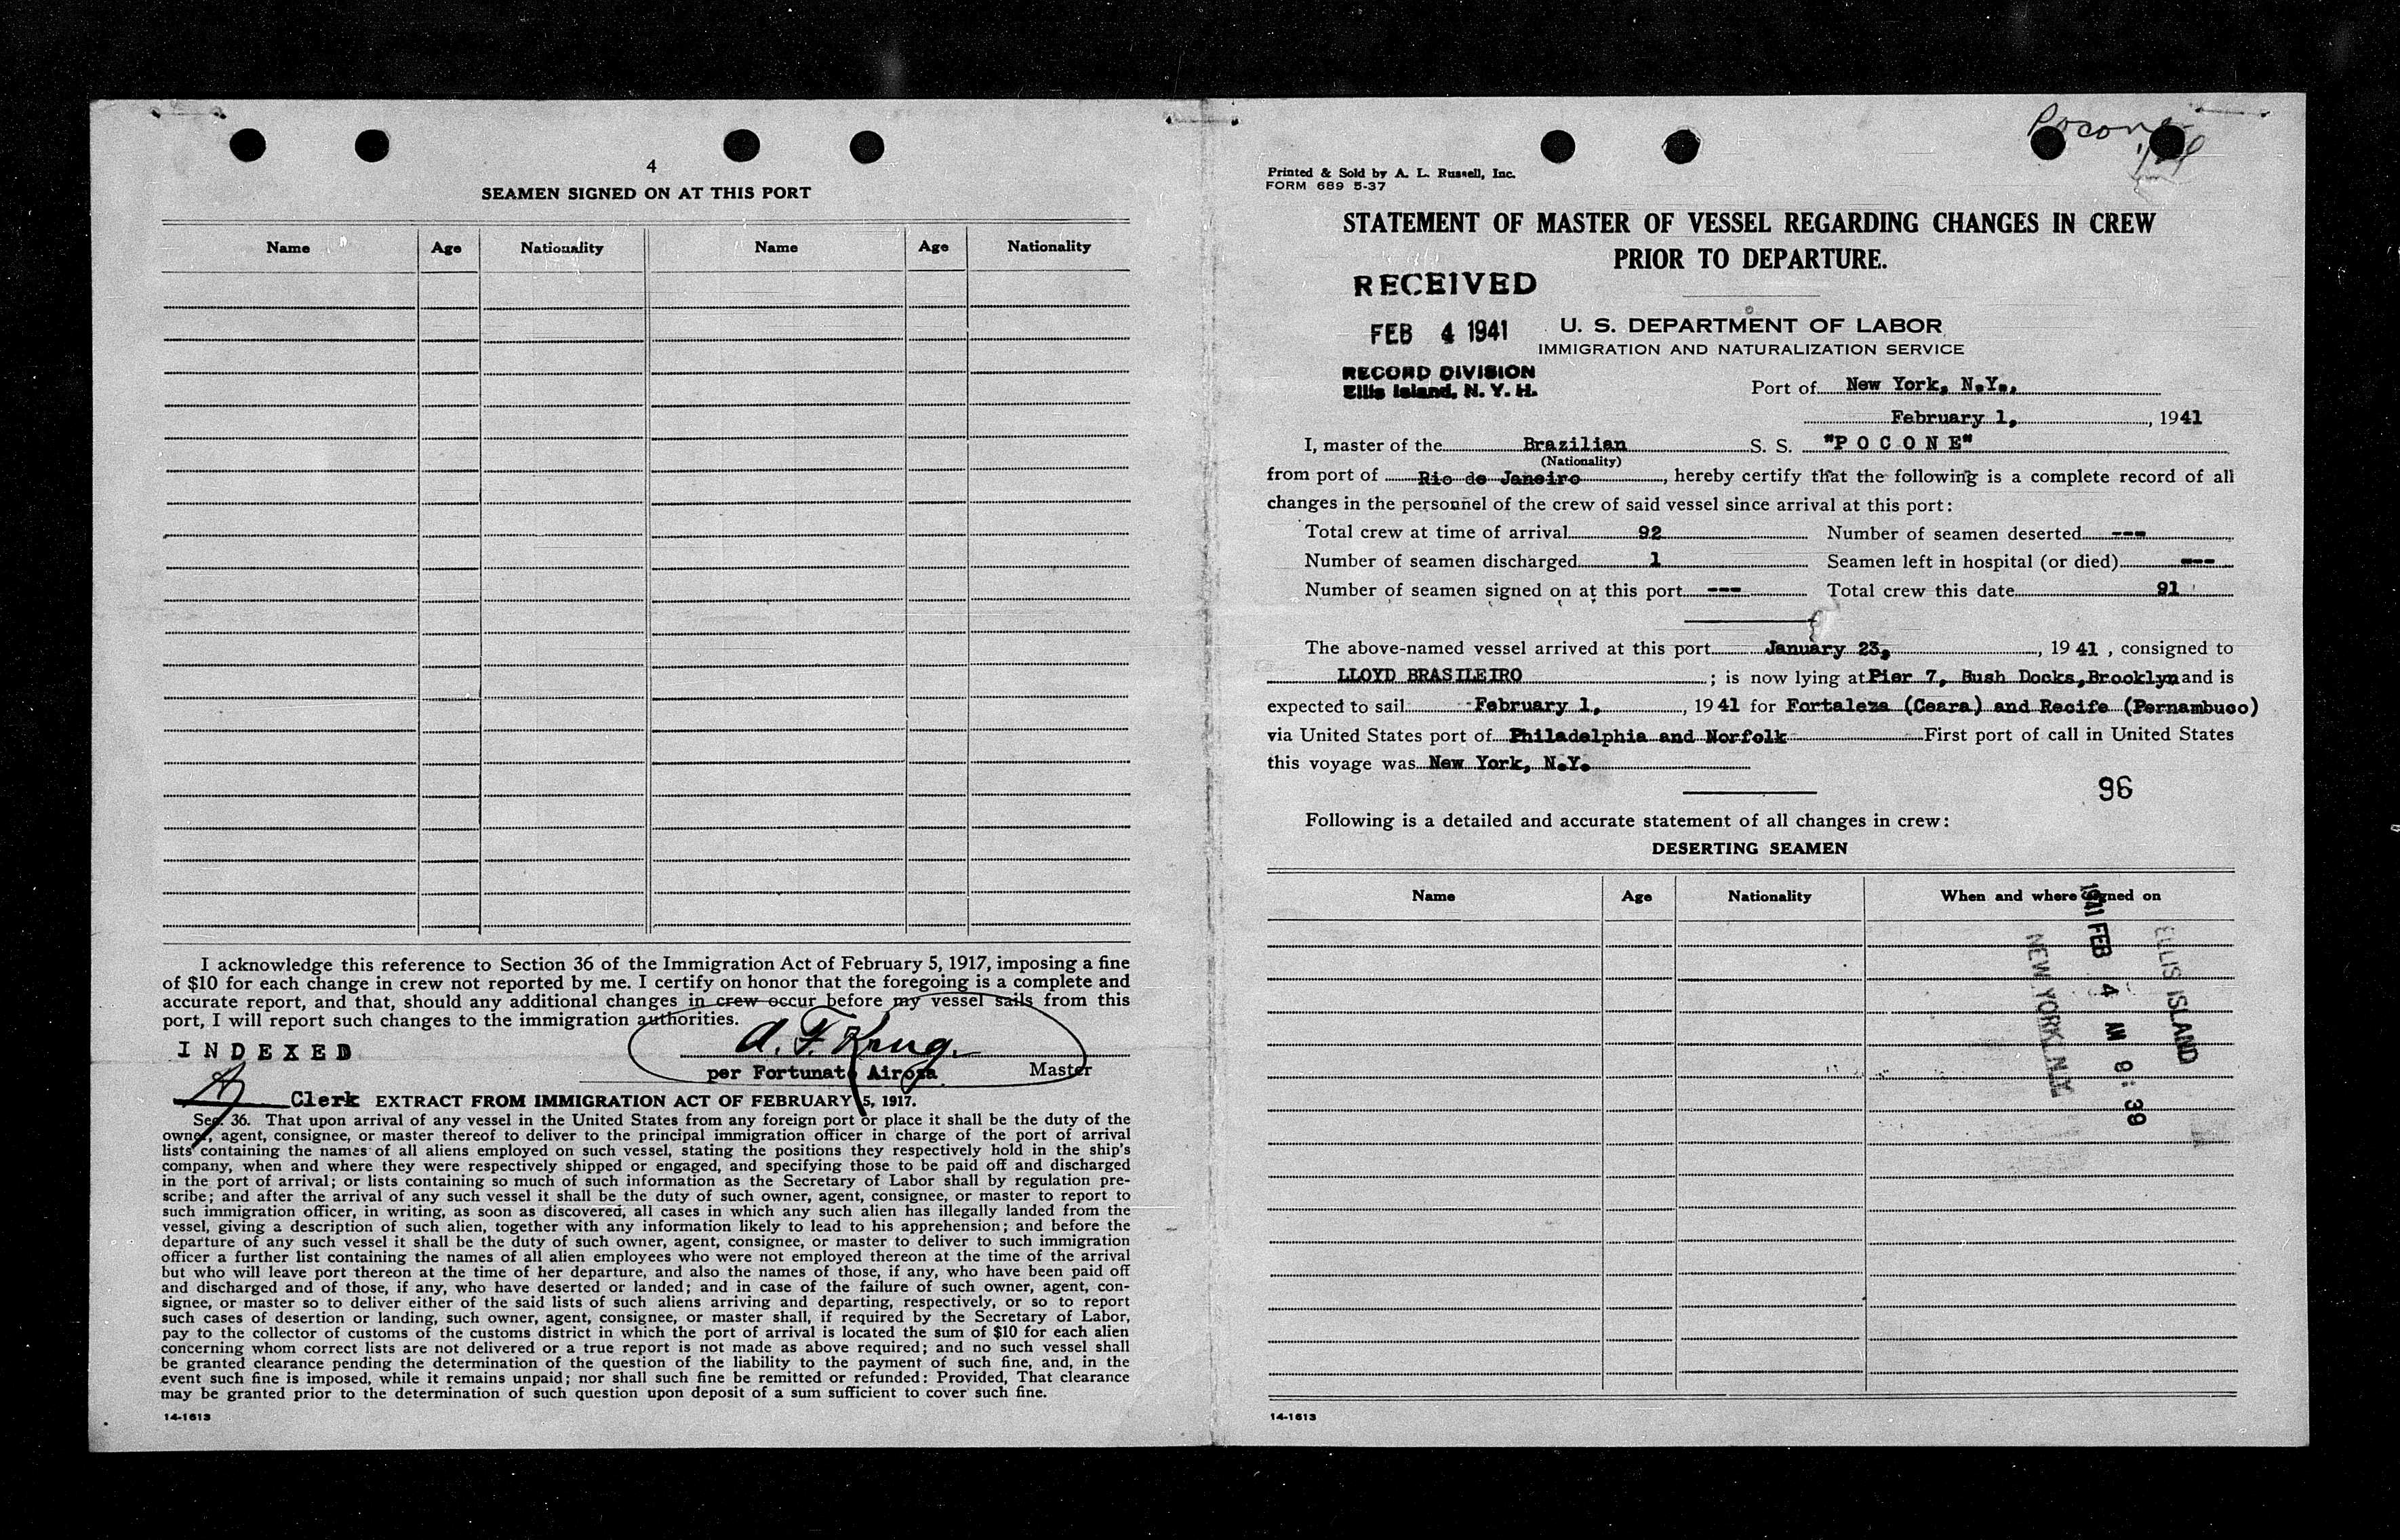 4
SEAMEN SIGNED ON AT THIS PORT
Name Age Nationality Name Age Nationality
I acknowledge this reference to Section 36 of the Immigration Act of February 5, 1917, imposing a fine
of $10 for each change in crew not reported by me. I certify on honor that the foregoing is a complete and
accurate report, and that, should any additional changes in crew occur before my vessel sails from this
port, I will report such changes to the immigration authorities.
INDEXED
A. F. Krug.
per Fortunato Airosa Master
Clerk EXTRACT FROM IMMIGRATION ACT OF FEBRUARY 5, 1917.
Sec. 36. That upon arrival of any vessel in the United States from any foreign port or place it shall be the duty of the
owner, agent, consignee, or master thereof to deliver to the principal immigration officer in charge of the port of arrival
lists containing the names of all aliens employed on such vessel, stating the positions they respectively hold in the ship's
company, when and where they were respectively shipped or engaged, and specifying those to be paid off and discharged
in the port of arrival; or lists containing so much of such information as the Secretary of Labor shall by regulation pre-
scribe; and after the arrival of any such vessel it shall be the duty of such owner, agent, consignee, or master to report to
such immigration officer, in writing, as soon as discovered, all cases in which any such alien has illegally landed from the
vessel, giving a description of such alien, together with any information likely to lead to his apprehension; and before the
departure of any such vessel it shall be the duty of such owner, agent, consignee, or master to deliver to such immigration
officer a further list containing the names of all alien employees who were not employed thereon at the time of the arrival
but who will leave port thereon at the time of her departure, and also the names of those, if any, who have been paid off
and discharged and of those, if any, who have deserted or landed; and in case of the failure of such owner, agent, con-
signee, or master so to deliver either of the said lists of such aliens arriving and departing, respectively, or so to report
such cases of desertion or landing, such owner, agent, consignee, or master shall, if required by the Secretary of Labor,
pay to the collector of customs of the customs district in which the port of arrival is located the sum of $10 for each alien
concerning whom correct lists are not delivered or a true report is not made as above required; and no such vessel shall
be granted clearance pending the determination of the question of the liability to the payment of such fine, and, in the
event such fine is imposed, while it remains unpaid; nor shall such fine be remitted or refunded: Provided, That clearance
may be granted prior to the determination of such question upon deposit of a sum sufficient to cover such fine.
14-1613
Pocone
Printed & Sold by A. L. Russell, Inc.
FORM 689 5-37
STATEMENT OF MASTER OF VESSEL REGARDING CHANGES IN CREW
PRIOR TO DEPARTURE.
RECEIVED
FEB 4 1941
RECORD DIVISION
Ellis Island, N. Y. H.
U. S. DEPARTMENT OF LABOR
IMMIGRATION AND NATURALIZATION SERVICE
Port of New York, N.Y.,
February 1, , 1941
I, master of the Brazilian S. S. "POCONE"
(Nationality)
from port of Rio de Janeiro , hereby certify that the following is a complete record of all
changes in the personnel of the crew of said vessel since arrival at this port:
Total crew at time of arrival 92 Number of seamen deserted ---
Number of seamen discharged 1 Seamen left in hospital (or died) ---
Number of seamen signed on at this port --- Total crew this date 91
The above-named vessel arrived at this port January 23, , 1941 , consigned to
LLOYD BRASILEIRO ; is now lying at Pier 7, Bush Docks, Brooklyn and is
expected to sail February 1, , 1941 for Fortaleza (Ceara) and Recife (Pernambuco)
via United States port of Philadelphia and Norfolk First port of call in United States
this voyage was New York, N.Y.
96
Following is a detailed and accurate statement of all changes in crew:
DESERTING SEAMEN
Name Age Nationality When and where signed on
ELLIS ISLAND
1941 FEB 4 AM 8:39
NEW YORK, N.Y.
14-1613